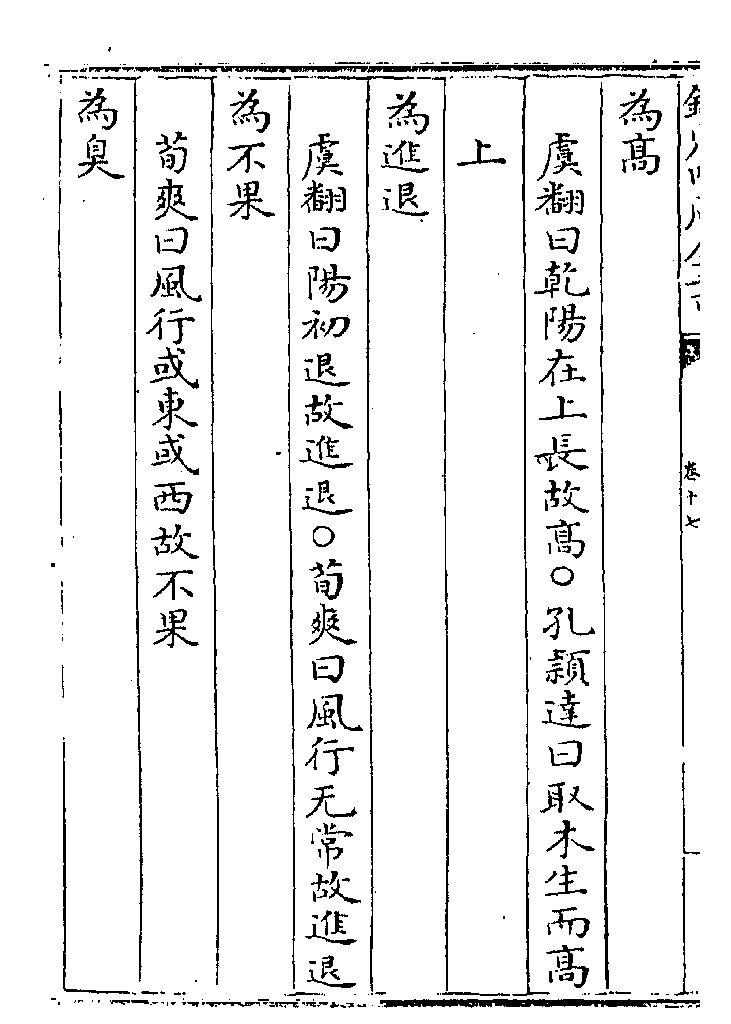 為高
虞翻曰乾陽在上長故高○孔穎達曰取木生而高
上
為進退
虞翻曰陽初退故進退○荀爽曰風行无常故進退
為不果
荀爽曰風行或東或西故不果
為臭
卷十七